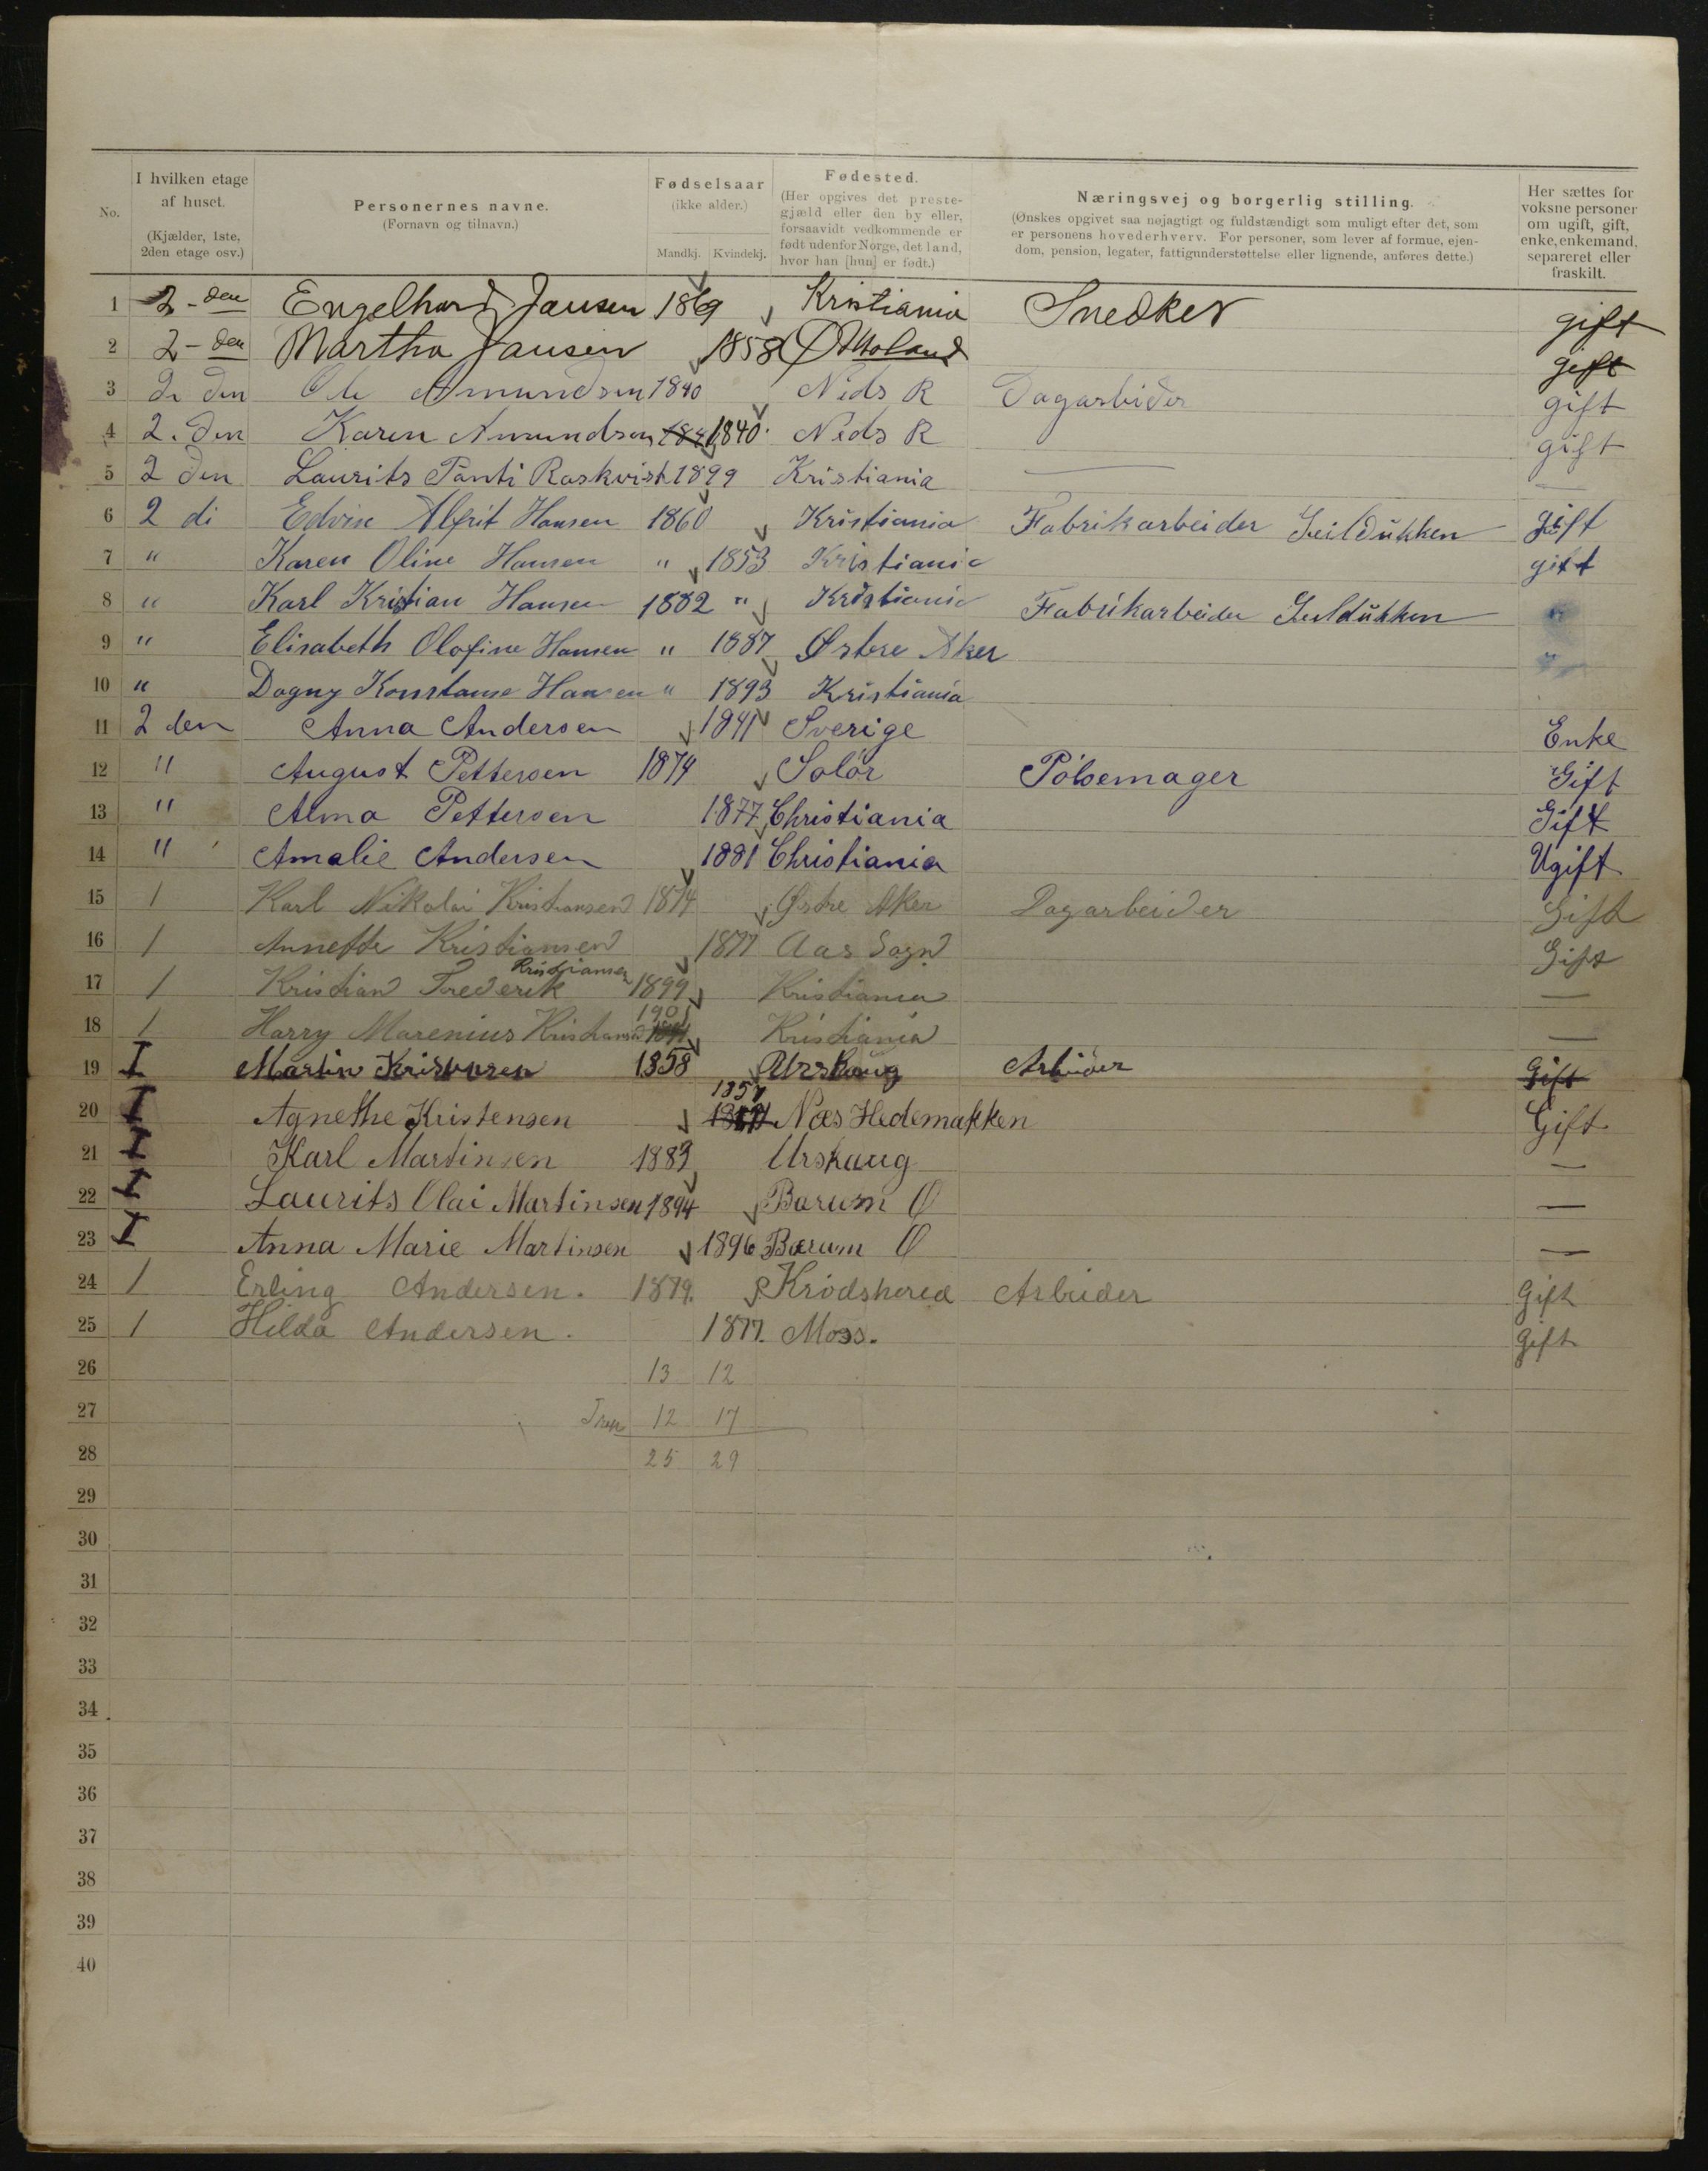 No.
I hvilken etage af huset. (Kjælder, 1ste, 2den etage osv.)
Personernes navne. (Fornavn og tilnavn.)
Fødselsaar (ikke alder.) Mandkj. Kvindekj.
Fødested. (Her opgives det prestegjæld eller den by eller, forsaavidt vedkommende er født udenfor Norge, det land, hvor han [hun] er født.)
Næringsvej og borgerlig stilling. (Ønskes opgivet saa nøjagtigt og fuldstændigt som muligt efter det, som er personens hovederhverv. For personer, som lever af formue, ejendom, pension, legater, fattigunderstøttelse eller lignende, anføres dette.)
Her sættes for voksne personer om ugift, gift, enke, enkemand, separeret eller fraskilt.
1 2-den Engelhard Jansen 1869 Kristiania Snedker gift
2 2-den Martha Jansen 1858 gift
3 2 den Ole Amundsen 1840 Neds R Dagarbeider gift
4 2. den Karen Amundsen 1840. Neds R gift
5 2 den Laurits Ponti Raskvist 1899 Kristiania —
6 2 di Edvin Alfrit Hansen 1860 Kristiania Fabrikarbeider Seildukken gift
7 " Karen Oline Hansen " 1853 Kristiania gift
8 " Karl Kristian Hansen 1882 " Kristiania Fabrikarbeider Seildukken "
9 " Elisabeth Olofine Hansen " 1887 Østre Aker "
10 " Dagny Konstanse Hansen " 1893 Kristiania
11 2 den Anna Andersen 1841 Sverige Enke
12 " August Pettersen 1874 Solör Pölsemager Gift
13 " Alma Pettersen 1877 Christiania Gift
14 " Amalie Andersen 1881 Christiania Ugift
15 1 Karl Nikolai Kristiansen 1874 Østre Aker Dagarbeider Gift
16 1 Annette Kristiansen 1877 Aas Sogn Gift
17 1 Kristian Frederik Kristiansen 1899 Kristiania —
18 1 Harry Marenius Kristiansen 1901 Kristiania —
19 I Martin Kristensen 1858 Urskoug Arbeider Gift
20 I Agnethe Kristensen 1857 Næs Hedemakken Gift
21 I Karl Martinsen 1889 Urskaug —
22 I Laurits Olai Martinsen 1894 Barum Ø —
23 I Anna Marie Martinsen 1896 Bærum Ø —
24 1 Erling Andersen. 1879. Krödshered Arbeider Gift
25 1 Hilda Andersen. 1877. Moss. Gift
26 13 12
27 12 17
28 25 29
29
30
31
32
33
34
35
36
37
38
39
40